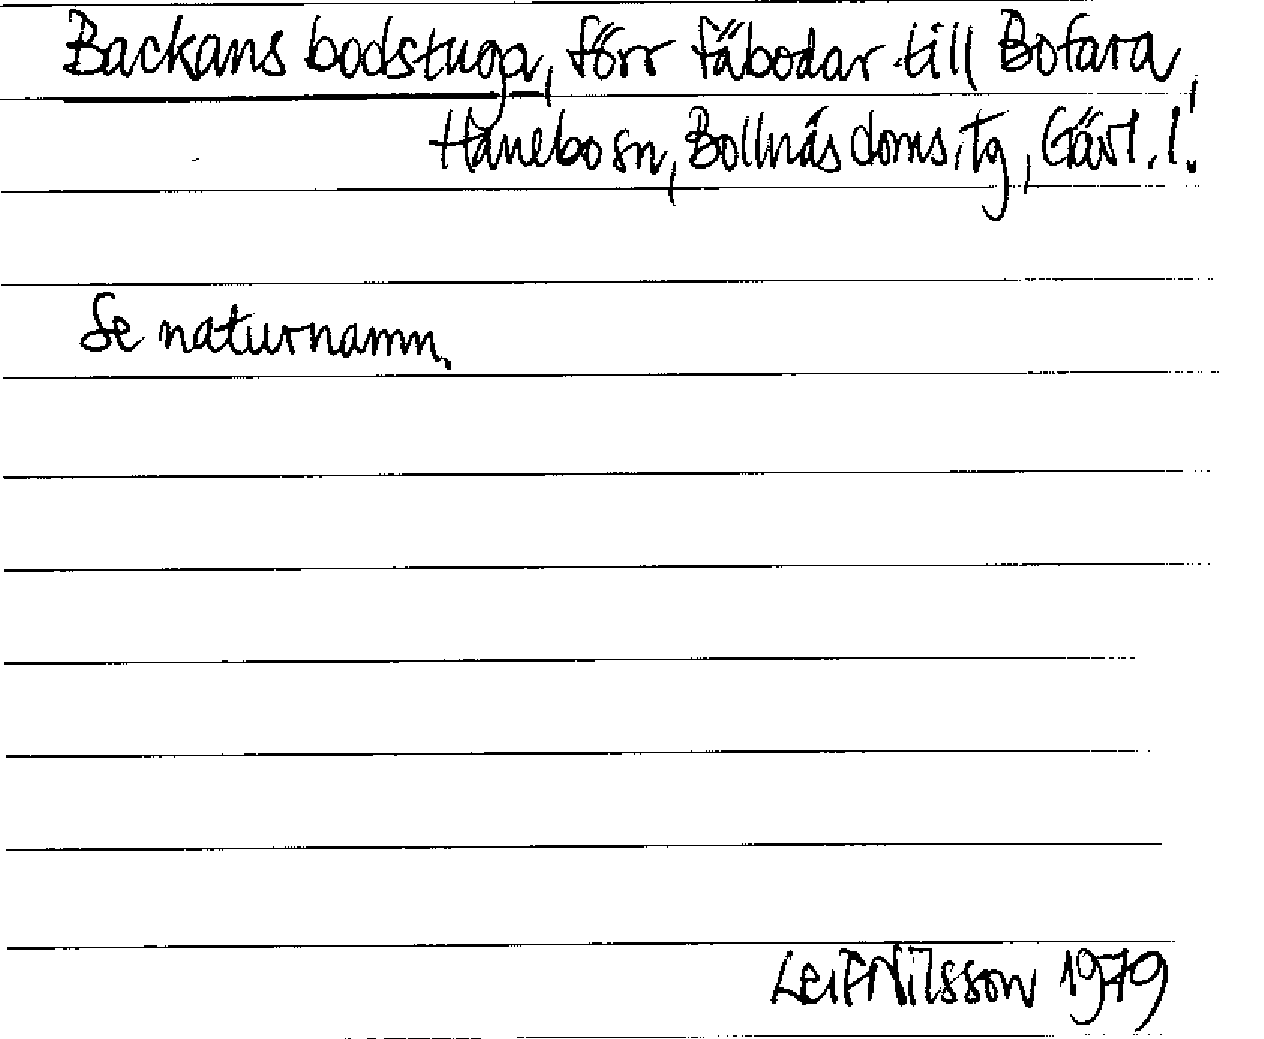 Backans bodstuga, förr fäbodar till Bofara,
Hanebo sn, Bollnäs doms.tg, Gävl. l.
Se naturnamn.
Leif Nilsson 1979